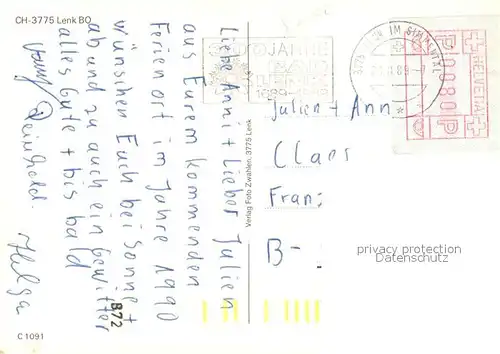 CH-3775 Lenk BO
Liebe Anni + Lieber Julien
aus Eurem kommenden
Ferienort im Jahre 1990
wünschen Euch bei Sonne +
ab und zu auch ein Gewitter
alles Gute + bis bald
Reinhold.
Helga
872
C 1091
Verlag Foto Zwahlen, 3775 Lenk
300 JAHRE
BAD
LENK
1689-1989
3775 LENK IM SIMMENTAL
HELVETIA
0080
P P
Julien + Ann
Claes
Fran
B-
privacy protection
Datenschutz